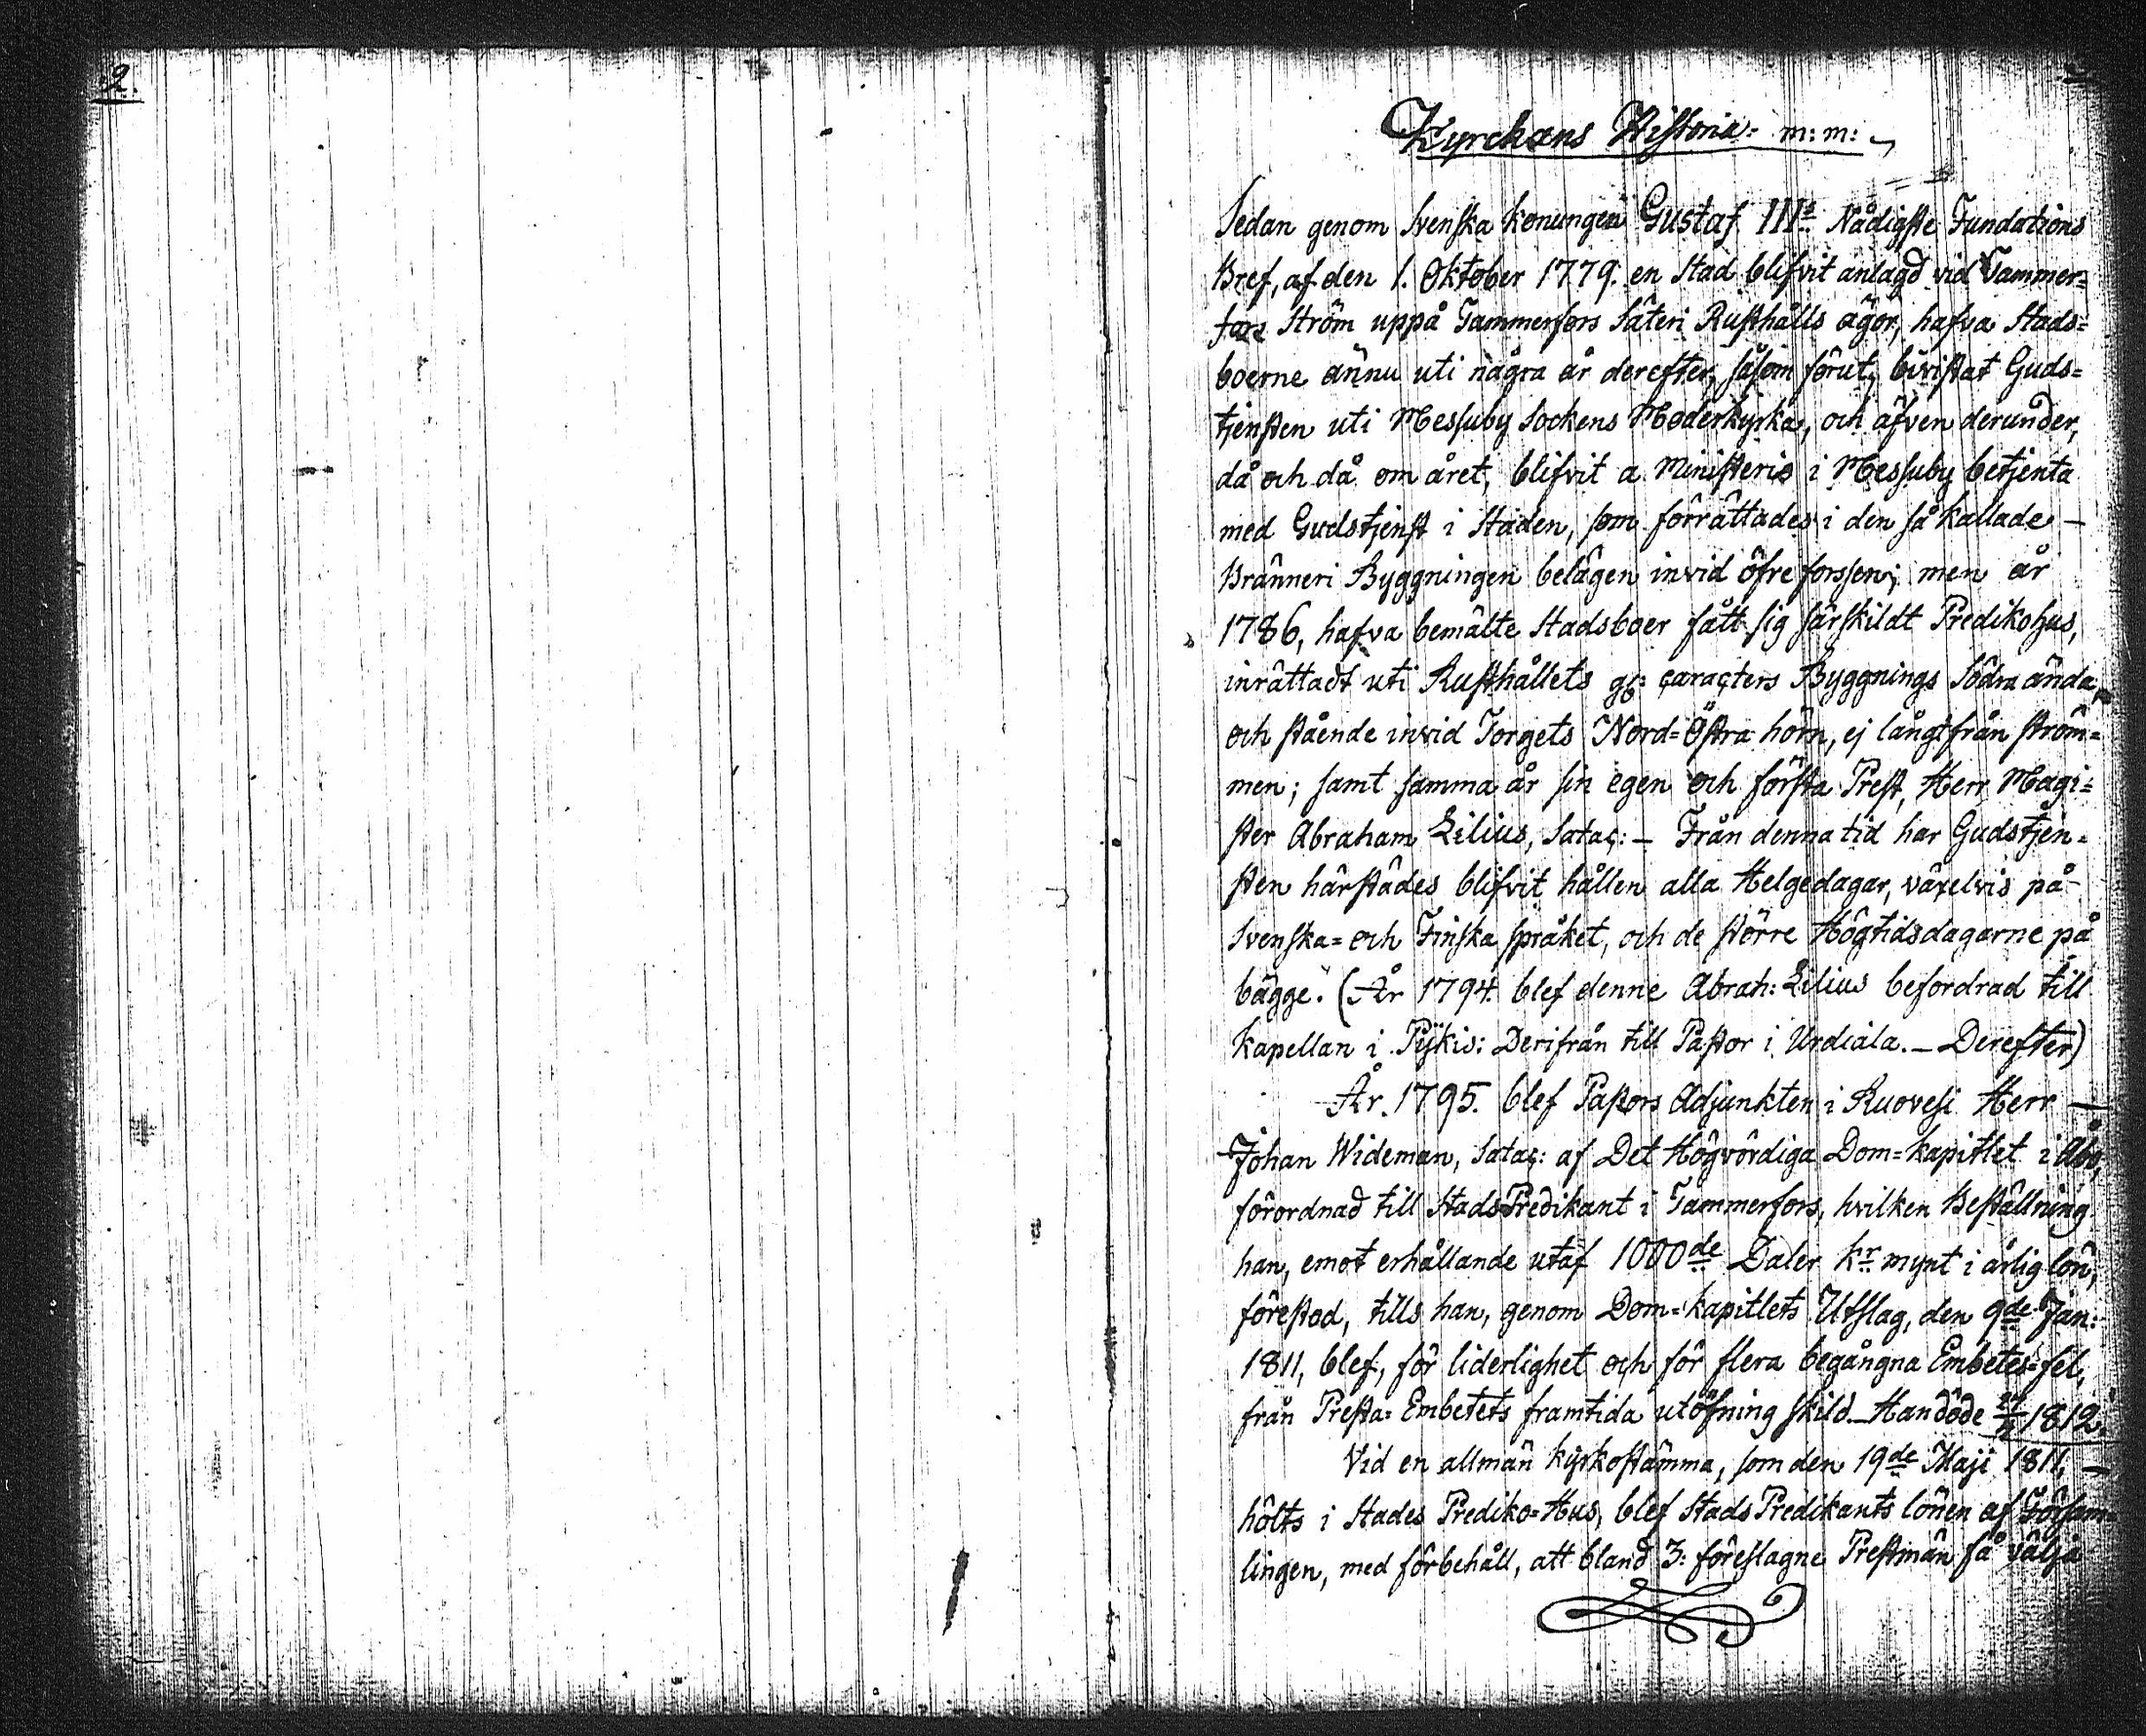 2.
Kyrckans Historia. m:m:
Sedan genom Svenska konungen Gustaf III:s Nådigste Fundations
Bref, af den 1. Oktober 1779. en Stad blifvit anlagd vid Tammer=
fors Ström uppå Tammerfors Säteri Rusthålls ägor, hafva Stads=
boerne ännu uti några år derefter, såsom förut, bivistat Guds=
tjensten uti Messuby Sockens Moderkyrka, och äfven derunder,
då och då om året, blifvit a Ministerio i Messuby betjenta
med Gudstjenst i Staden, som förrättades i den så kallade –
Bränneri Byggningen belägen invid öfre forssen; men år
1786, hafva bemälte Stadsboer fått sig särskildt Predikohus,
inrättadt uti Rusthållets caracters Byggnings Södra ända,
och stående invid Torgets Nord=Östra hörn, ej långt från ström=
men; samt samma år sin egen och första Prest, Herr Magi=
ster Abraham Lilius, Satac: – Från denna tid har Gudstjen=
sten härstädes blifvit hållen alla Helgedagar, växelvis på
Svenska= och Finska språket, och de större Högtidsdagarne på
bägge. (År 1794. blef denne Abrah: Lilius befordrad till
Kapellan i Pÿkis: Derifrån till Pastor i Urdiala. – Derefter)
År. 1795. blef Pastors Adjunkten i Ruovesi Herr –
Johan Wideman, Satac: af Det Högvördiga Dom=kapitlet i Åbo,
förordnad till StadsPredikant i Tammerfors, hvilken Beställning
han, emot erhållande utaf 1000de Daler kr mynt i årlig lön,
förestod, tills han, genom Dom=kapitlets Utslag, den 9de Jan:
1811, blef, för liderlighet och för flera begångna Embetes=fel,
från Presta=Embetets framtida utöfning skild. – Han döde 1812.
Vid en allmän kyrkostämma, som den 19de Maji 1811, –
hölts i Stades Prediko=Hus, blef StadsPredikants lönen af Församl=
lingen, med förbehåll, att bland 3: föreslagne Prestmän få välja